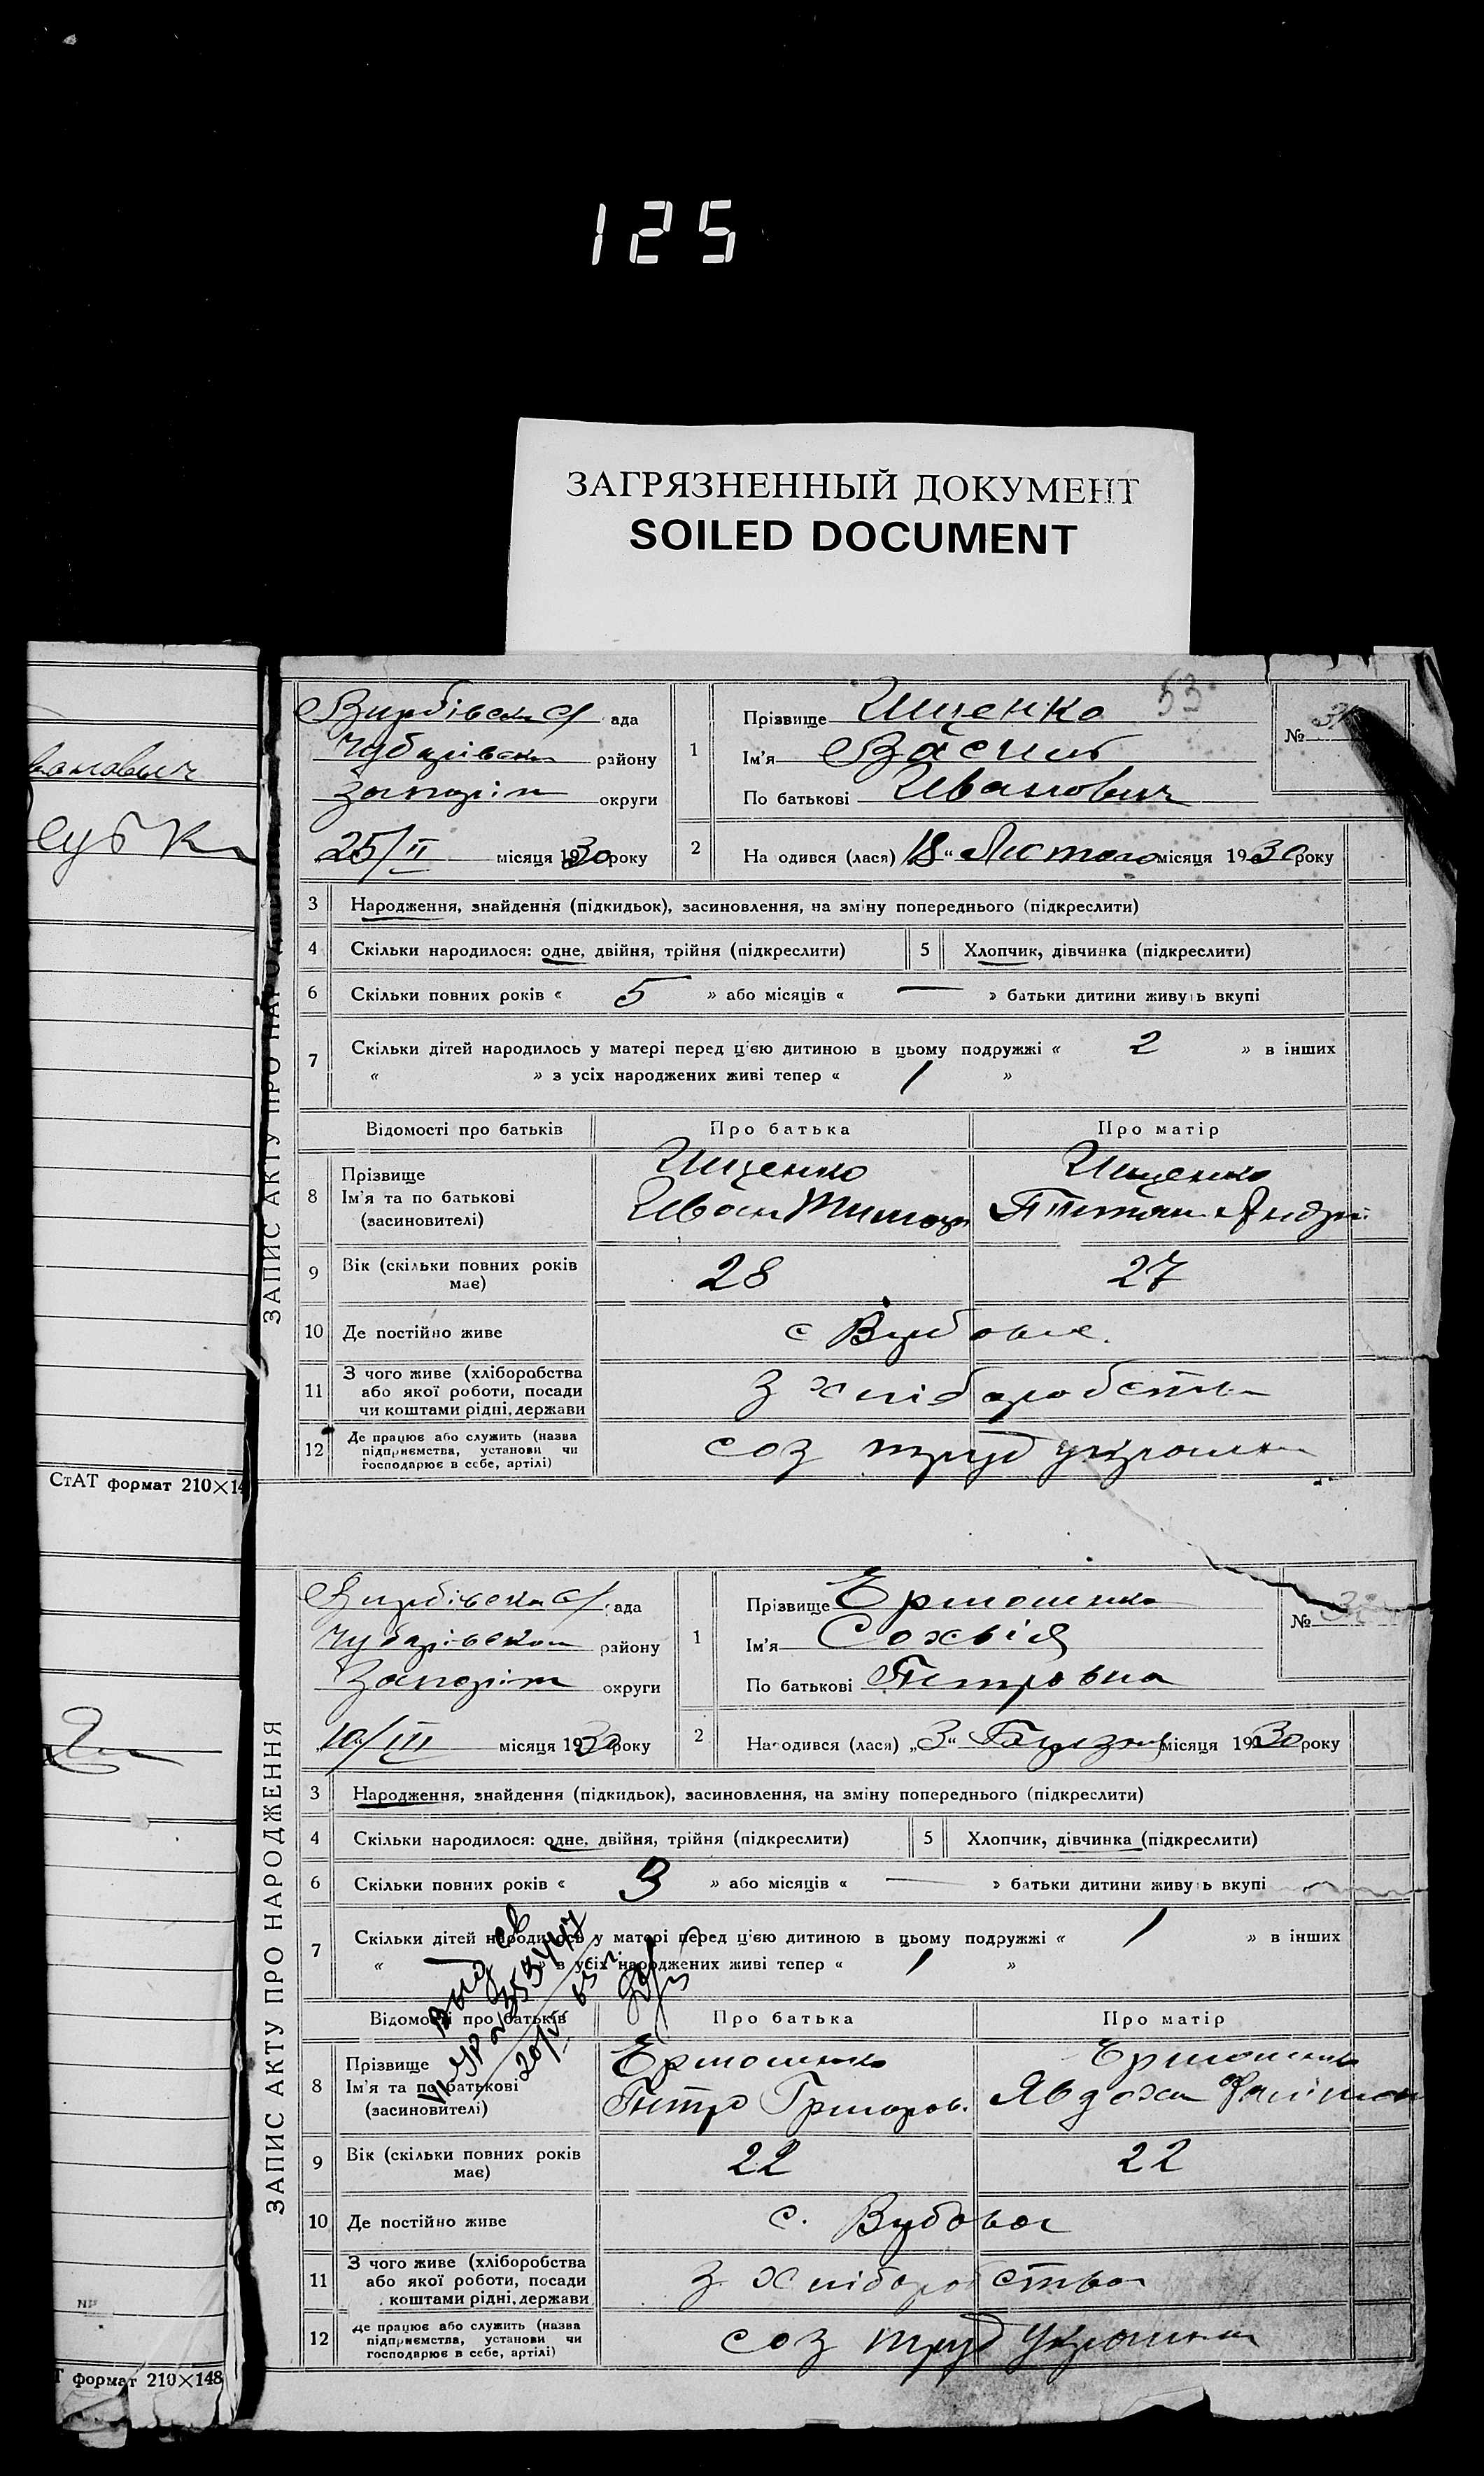 125
ЗАГРЯЗНЕННЫЙ ДОКУМЕНТ
SOILED DOCUMENT
53
СтАТ формат 210×14
ЗАПИС АКТУ ПРО НАРОДЖЕННЯ
ада
Чубарівськ району
Запоріж округи
25/II місяця 1930 року
1
Прізвище Ищенко
Ім'я Василь
По батькові Иванович
№
2 На одився (лася) 18 “ Лютого місяця 1930 року
3 Народження, знайдення (підкидьок), засиновлення, на зміну попереднього (підкреслити)
4 Скільки народилося: одне, двійня, трійня (підкреслити) 5 Хлопчик, дівчинка (підкреслити)
6 Скільки повних років « 5 » або місяців « — » батьки дитини живуть вкупі
7 Скільки дітей народилось у матері перед ц'єю дитиною в цьому подружжі « 2 » в інших
« » з усіх народжених живі тепер « 1 »
Відомості про батьків Про батька Про матір
8 Прізвище
Ім'я та по батькові
(засиновителі)
Ищенко
Иван
Ищенко
9 Вік (скільки повних років має) 28 27
10 Де постійно живе с
11 З чого живе (хліборобства або якої роботи, посади чи коштами рідні, держави З хліборобства
12 Де працює або служить (назва підприємства, установи чи господарює в себе, артілі) соз труд
ЗАПИС АКТУ ПРО НАРОДЖЕННЯ
ада
району
Запоріж округи
10/III місяця 1930 року
1
Прізвище Ермошенко
Ім'я Сохвія
По батькові Петровна
№
2 Народився (лася) „3“ місяця 1930 року
3 Народження, знайдення (підкидьок), засиновлення, на зміну попереднього (підкреслити)
4 Скільки народилося: одне, двійня, трійня (підкреслити) 5 Хлопчик, дівчинка (підкреслити)
6 Скільки повних років « 3 » або місяців « — » батьки дитини живуть вкупі
7 Скільки дітей народилось у матері перед ц'єю дитиною в цьому подружжі « 1 » в інших
« » з усіх народжених живі тепер « 1 »
Відомості про батьків Про батька Про матір
8 Прізвище
Ім'я та по батькові
(засиновителі)
Ермошенко
Петро Григоров.
Ермошенко
Явдоха
9 Вік (скільки повних років має) 22 22
10 Де постійно живе с.
11 З чого живе (хліборобства або якої роботи, посади коштами рідні, держави З хліборобства
12 де працює або служить (назва підприємства, установи чи господарює в себе, артілі) соз труд
формат 210×148